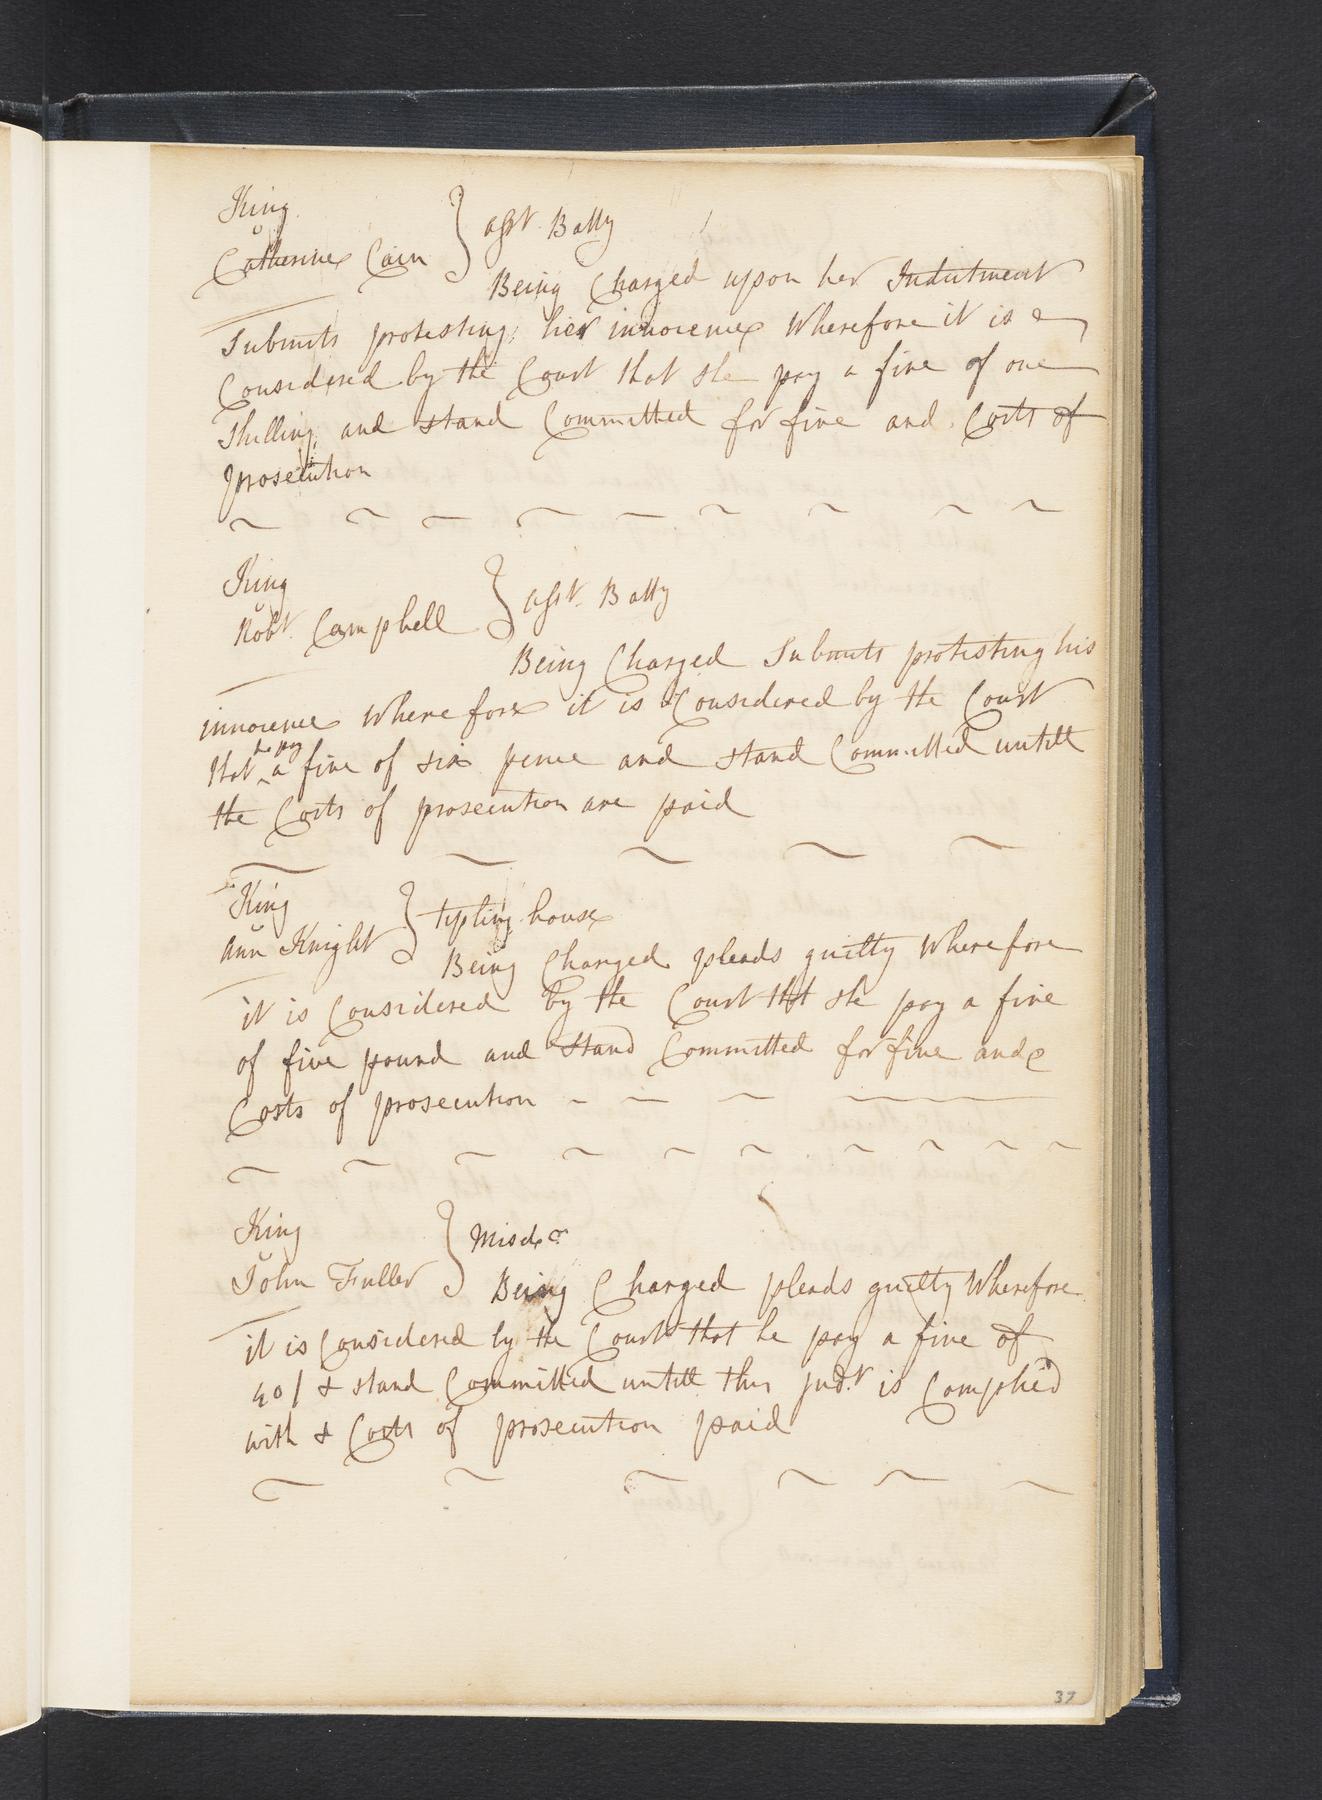 King
v
Catherine Cain } asst. Batty
Being Charged upon her Indictment
Submits protesting her innocence Wherefore it is
Considered by the Court that she pay a fine of one
Shilling and stand Committed for fine and Costs of
prosecution
King
v
Robt. Campbell } asst. Batty
Being Charged Submits protesting his
innocence Wherefore it is Considered by the Court
that he pay a fine of six pence and stand Committed untill
the Costs of prosecution are paid
King
v
Ann Knight } tipling house
Being Charged pleads guilty Wherefore
it is Considered by the Court tht she pay a fine
of five pound and stand Committed for fine and
Costs of prosecution
King
v
John Fuller } Misdr.
Being Charged pleads guilty Wherefore
it is Considered by the Court that he pay a fine of
40/ & stand Committed untill this judt. is Complied
with & Costs of prosecution paid
37